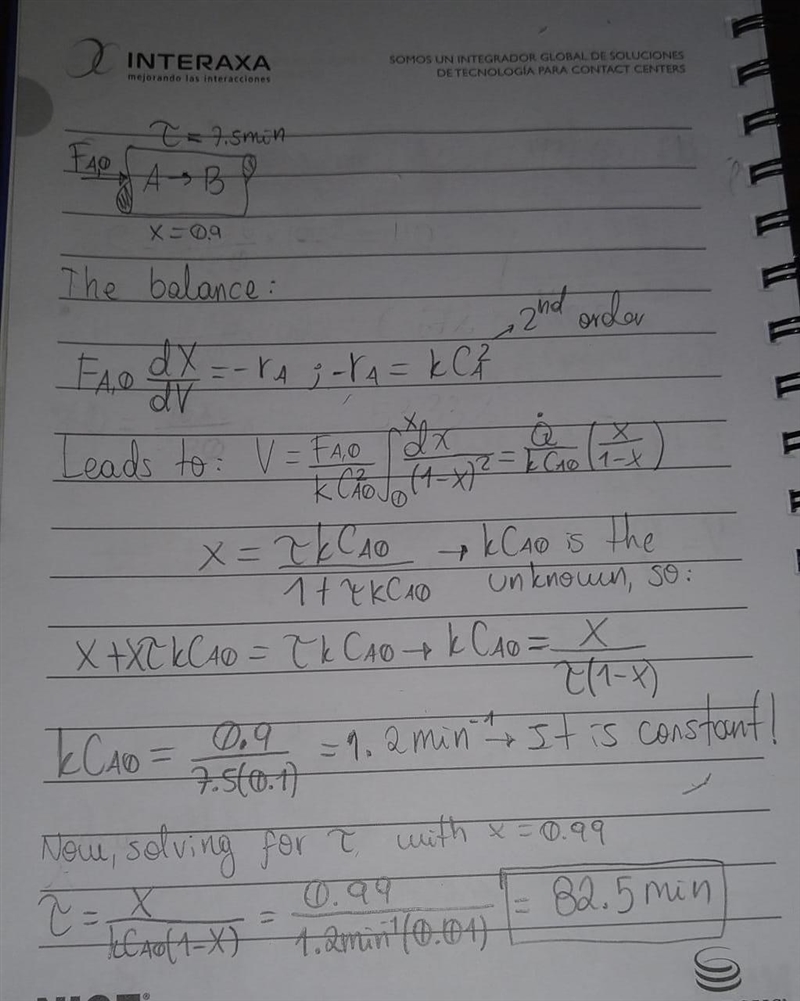 INTERAXA
mejorando las interacciones
SOMOS UN INTEGRADOR GLOBAL DE SOLUCIONES
DE TECNOLOGÍA PARA CONTACT CENTERS
τ = 7.5min
FA,0
A → B
x = 0.9
The balance:
2nd order
FA,0 dX/dV = -rA ; -rA = kCA²
Leads to: V = FA,0/kCA0² ∫0^x dx/(1-x)² = Q̇/kCA0 (x/1-x)
x = τkCA0/1+τkCA0 → kCA0 is the
unknown, so:
x + xτkCA0 = τkCA0 → kCA0 = x/τ(1-x)
kCA0 = 0.9/7.5(0.1) = 1.2min⁻¹ → It is constant!
Now, solving for τ, with x = 0.99
τ = x/kCA0(1-x) = 0.99/1.2min⁻¹(0.01) = 82.5min